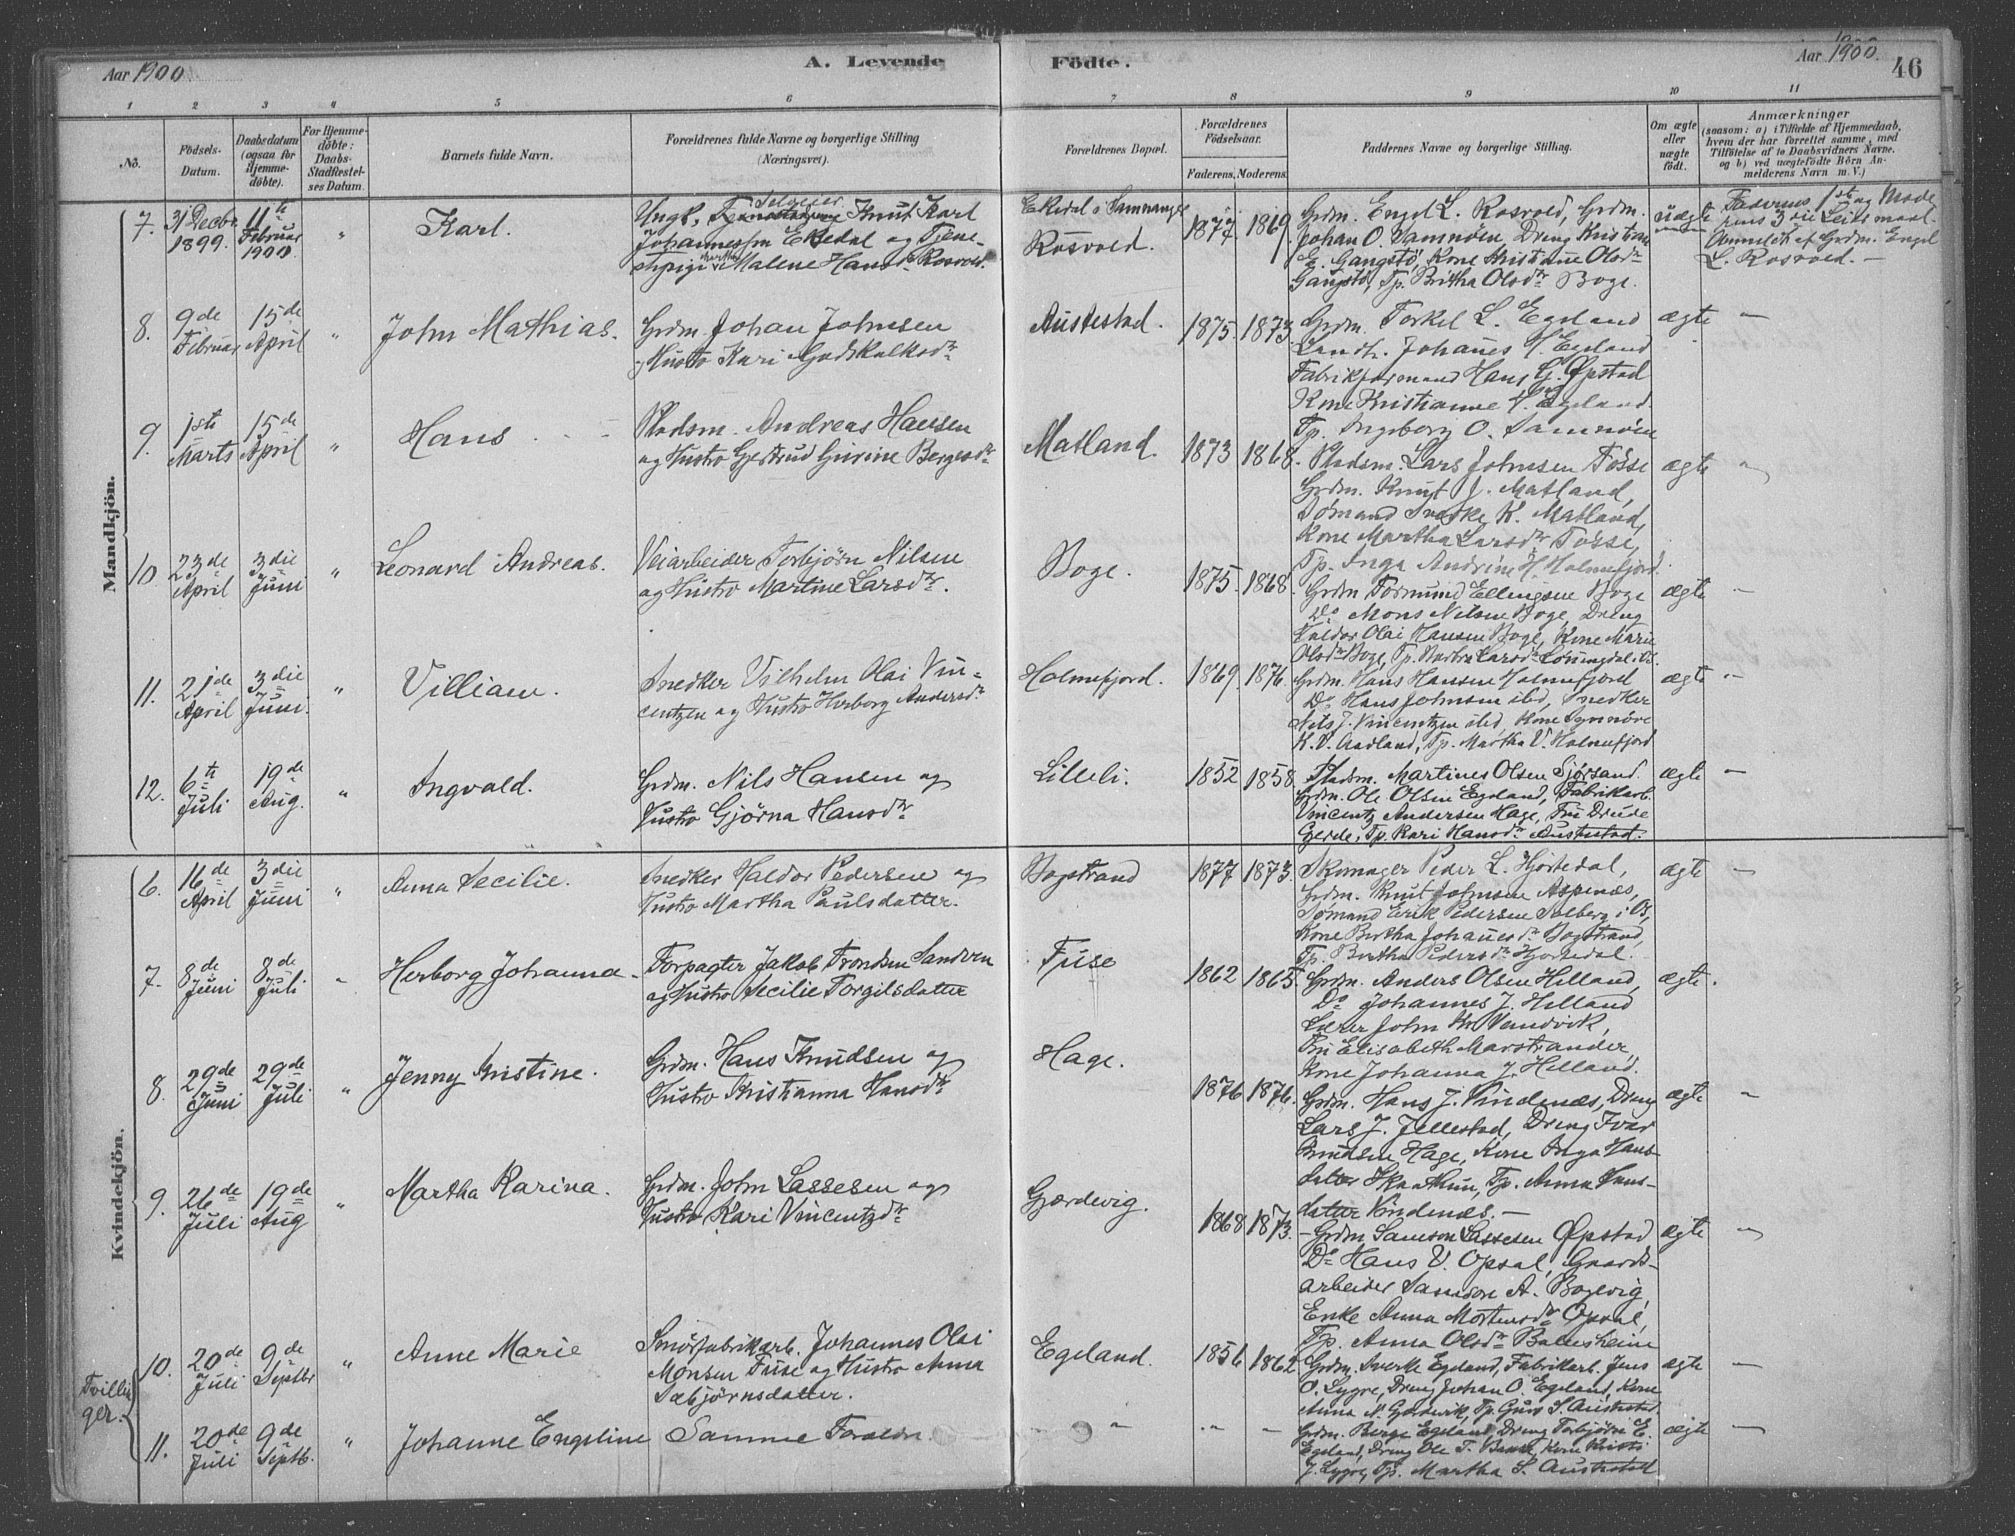 Aar 1900.
A. Levende
Födte.
Aar 1900.
46
1 2 3 4 5 6 7 8 9 10 11
No.
Födsels-
Datum.
Daabsdatum
(ogsaa for
Hjemme-
döbte).
For Hjemme-
döbte:
Daabs-
Stadfæstel-
ses Datum.
Barnets fulde Navn.
Forældrenes fulde Navne og borgerlige Stilling
(Næringsvei).
Forældrenes Bopæl.
Forældrenes
Födselsaar.
Faderens. Moderens.
Faddernes Navne og borgerlige Stilling.
Om ægte
eller
uægte
födt.
Anmærkninger
(saasom: a) i Tilfælde af Hjemmedaab,
hvem der har forrettet samme, med
Tilföielse af to Daabsvidners Navne,
og b) ved uægtefödte Börn An-
melderens Navn m. V.)
Mandkjön.
7.
31 Decbr.
1899.
11te
Februar
1900
"
Karl.
Ungk. Knut Karl
Johannessen Ekedal og Tjene-
stepige Malene Hansdr Rosvold.
Ekedal i Samnanger
Rosvold.
1877. 1869
Grdm. Engel L. Rosvold, Grdm.
Johan O. Samnöen, Dreng Kristian
E. Gangstö, Kone Kristiane Olsdr
Gangstö, Tp. Britha Olsdr Boge.
uægte
Faderens 1ste og Mode
rens 3die Leiermaal.
Anmeldt af Grdm. Engel
L. Rosvold. —
8.
9de
Februar
15de
April
"
John Mathias.
Grdm. Johan Johnsen
og Hustro Kari Godskalksdr
Austestad.
1875. 1873.
Grdm. Torkel L. Egeland
Landh. Johanes H. Egeland
Fabrikformand Hans G. Øpstad
Kone Kristianne H. Egeland.
Tp. Ingeborg O. Samnöen
ægte
—
9.
1ste
Marts
15de
April
"
Hans.
Pladsm. Andreas Hansen
og Hustro Gjertrud Gurine Bergesdr
Matland.
1873 1868.
Pladsm. Lars Johnsen Tösse
Grdm. Knut J. Matland,
Sömand Sverke K. Matland,
Kone Martha Larsdr Tösse,
Tp. Inga Andrine H. Holmefjord.
ægte
"
10.
23de
April
3die
Juni
"
Leonard Andreas.
Veiarbeider Torbjörn Nilsen
og Hustro Martine Larsdr.
Boge.
1875. 1868.
Grdm Tormund Ellingsen Boge
Do Mons Nilsen Boge, Dreng
Haldor Olai Hansen Boge, Kone Marie
Olsdr Boge, Tp. Larsdr Löningdal i Os.
ægte
"
11.
21de
April
3die
Juni.
"
Villiam.
Snedker Vilhelm Olai Vin-
centzen og Hustro Herborg Andersdr
Holmefjord.
1869. 1876.
Grdm. Hans Hansen Holmefjord
Do Hans Johnsen ibd, Snedker
Nils J. Vincentzen ibd, Kone Synnöve
K. V. Aadland, Tp. Martha V. Holmefjord
ægte
"
12.
6te
Juli
19de
Aug.
"
Ingvald.
Grdm. Nils Hansen og
Hustro Gjörna Hansdr
Lilleli.
1852 1858.
Pladsm. Martines Olsen Sjörsand.
Grdm. Ole Olsen Egeland, Fabrikarb.
Vincentz Andersen Hage, Fru Drude
Gerde, Tp. Kari Hansdr Austestad.
ægte
—
Kvindekjön.
6.
16de
April
3die
Juni
"
Anna Secilie.
Snedker Haldor Pedersen og
Hustro Martha Paulsdatter.
Bogstrand
1877 1873.
Skomager Peder L. Hjortedal,
Grdm. Knut Johnsen Aspenæs,
Sömand Erik Pedersen Solberg i Os,
Kone Bertha Johanesdr Bogstrand,
Tp. Bertha Pedersdr Hjortedal.
ægte
—
7.
8de
Juni
8de
Juli
"
Herborg Johanna.
Forpagter Jakob Trondsen Sandven
og Hustro Secilie Torgilsdatter
Fuse
1862 1865.
Grdm. Anders Olsen Helland,
Do Johannes J. Helland
Lærer John Kr. Vendvik,
Fru Elisabeth Marstrander,
Kone Johanna J. Helland.
ægte.
8.
29de
Juni
29de
Juli
"
Jenny Kristine.
Grdm. Hans Knudsen og
Hustro Kristianna Hansdr
Hage.
1876 1876.
Grdm. Hans J. Vindenæs, Dreng
Lars J. Jellestad, Dreng Ivar
Knudsen Hage, Kone Inga Hans-
datter Skaathun, Tp. Anna Hans-
datter Vindenæs. —
ægte
"
9.
26de
Juli
19de
Aug
"
Martha Karina.
Grdm. John Lassesen og
Hustro Kari Vincentzdr
Gjærdevig.
1868 1873.
Grdm Samson Lassesen Øpstad
Do Hans V. Opsal, Gaards-
arbeider Samson A. Bogevig,
Enke Anna Mortensdr Opsal,
Tp. Anna Olsdr Balesheim
ægte
"
Tvillin-
ger.
10.
20de
Juli
9de
Septbr
"
Anne Marie
Smörfabrikarb. Johannes Olai
Monsen Fuse og Hustro Anna
Sæbjörnsdatter.
Egeland.
1856 1862
Grdm. Sverke Egeland, Fabrikarb. Jens
O. Lygre, Dreng Johan O. Egeland, Kone
Anna N. Gjærdevik, Tp. Guro S. Austestad.
ægte
—
11.
20de
Juli
9de
Septb.
"
Johanne Engeline
Samme Forældre
" " "
Grdm. Berge Egeland, Dreng Torbjörn E.
Egeland, Dreng Ole T. Kone
J. Lygre, Tp. Martha S. Austestad
ægte
—